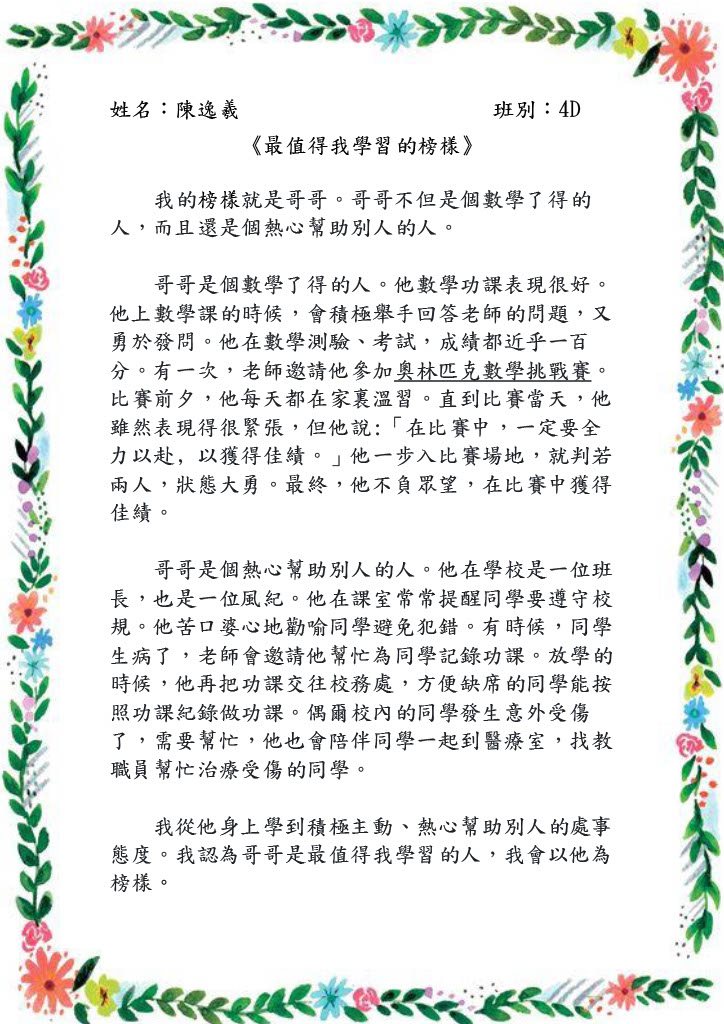 姓名：陳逸羲 班別：4D
《最值得我學習的榜樣》
我的榜樣就是哥哥。哥哥不但是個數學了得的
人，而且還是個熱心幫助別人的人。
哥哥是個數學了得的人。他數學功課表現很好。
他上數學課的時候，會積極舉手回答老師的問題，又
勇於發問。他在數學測驗、考試，成績都近乎一百
分。有一次，老師邀請他參加奧林匹克數學挑戰賽。
比賽前夕，他每天都在家裏溫習。直到比賽當天，他
雖然表現得很緊張，但他說:「在比賽中，一定要全
力以赴, 以獲得佳績。」他一步入比賽場地，就判若
兩人，狀態大勇。最終，他不負眾望，在比賽中獲得
佳績。
哥哥是個熱心幫助別人的人。他在學校是一位班
長，也是一位風紀。他在課室常常提醒同學要遵守校
規。他苦口婆心地勸喻同學避免犯錯。有時候，同學
生病了，老師會邀請他幫忙為同學記錄功課。放學的
時候，他再把功課交往校務處，方便缺席的同學能按
照功課紀錄做功課。偶爾校內的同學發生意外受傷
了，需要幫忙，他也會陪伴同學一起到醫療室，找教
職員幫忙治療受傷的同學。
我從他身上學到積極主動、熱心幫助別人的處事
態度。我認為哥哥是最值得我學習的人，我會以他為
榜樣。